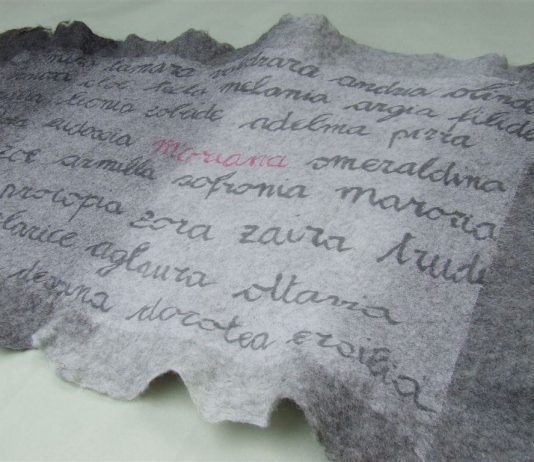 tamara andria olind
cloe tecla melania argia fillide
leonia zobeide adelma pirra
eudoxia moriana smeraldina
zoe armilla sofronia marozia
procopia zora zaira trude
clarice aglaura ottavia
despina dorotea ersilia